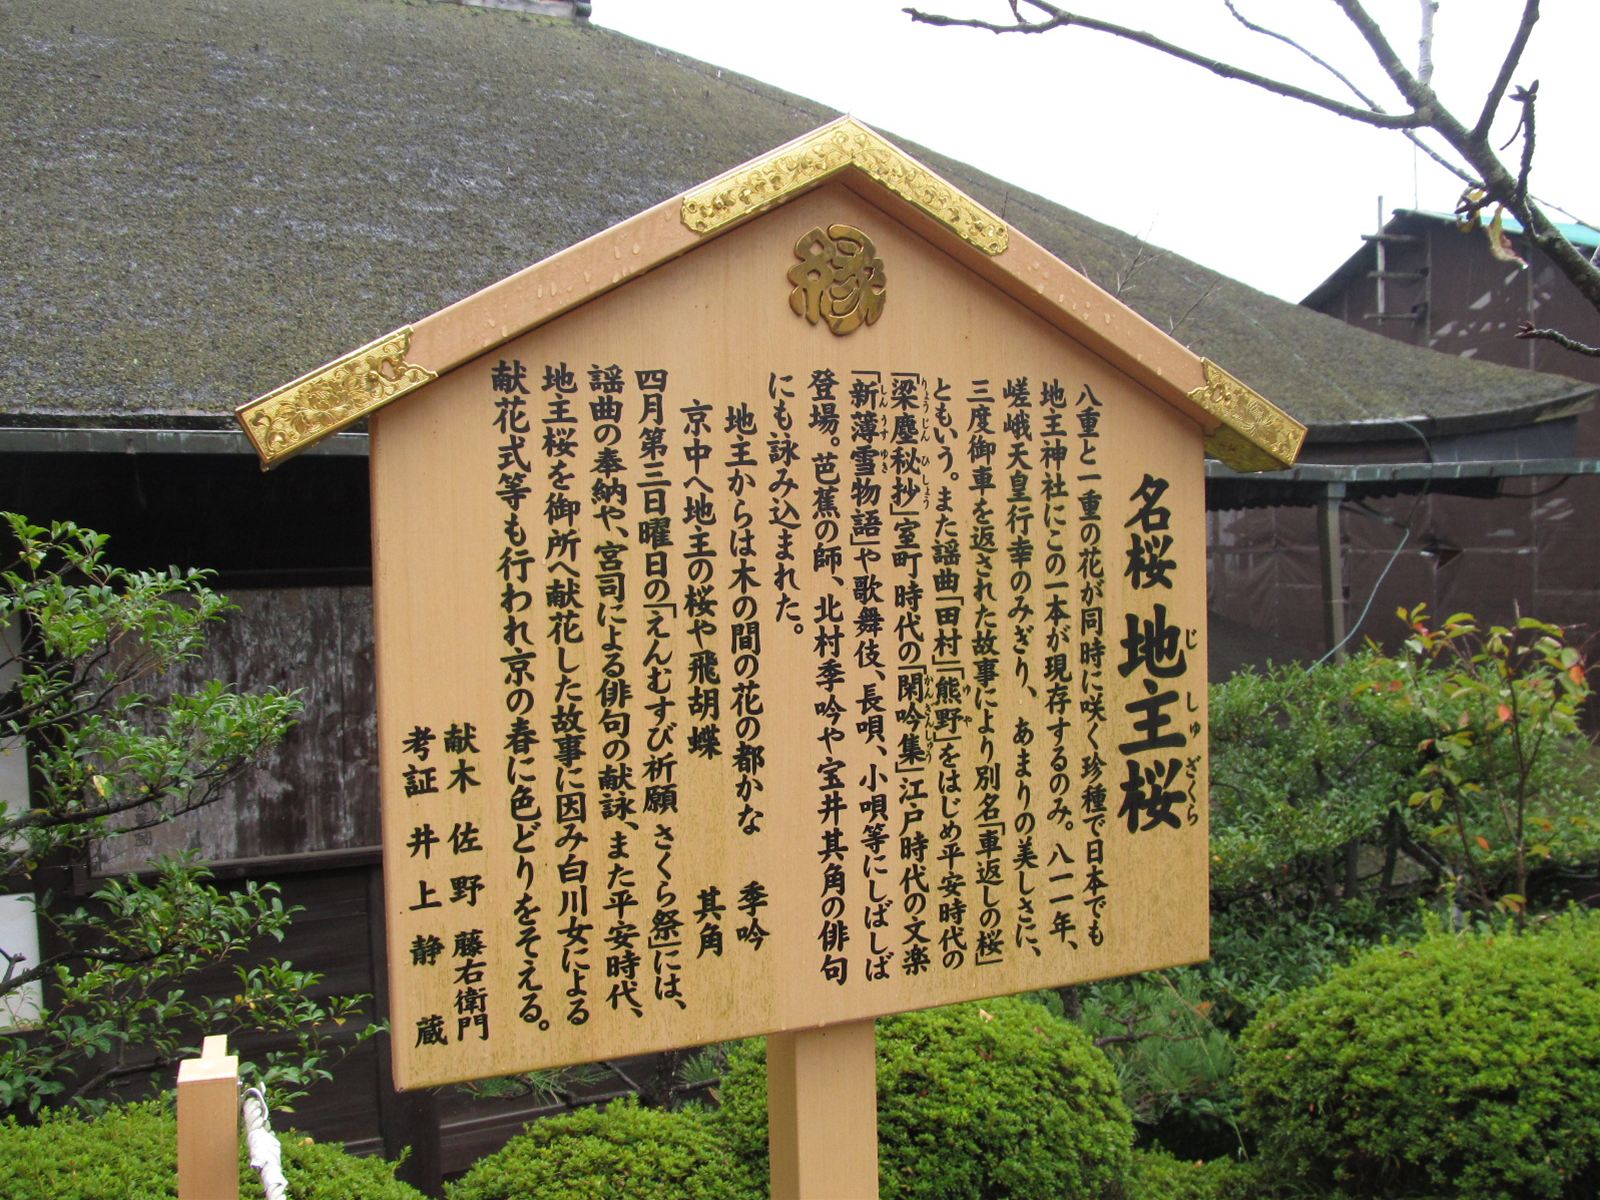 縁
名桜 地主桜
じしゅざくら
八重と一重の花が同時に咲く珍種で日本でも
地主神社にこの一本が現存するのみ。八一一年、
嵯峨天皇行幸のみぎり、あまりの美しさに、
三度御車を返された故事により別名「車返しの桜」
ともいう。また謡曲「田村」「熊野」をはじめ平安時代の
ゆや
「梁塵秘抄」室町時代の「閑吟集」江戸時代の文楽
りょうじんひしょう
かんぎんしゅう
「新薄雪物語」や歌舞伎、長唄、小唄等にしばしば
しんうすゆき
登場。芭蕉の師、北村季吟や宝井其角の俳句
にも詠み込まれた。
地主からは木の間の花の都かな 季吟
京中へ地主の桜や飛胡蝶 其角
四月第三日曜日の「えんむすび祈願 さくら祭」には、
謡曲の奉納や、宮司による俳句の献詠、また平安時代、
地主桜を御所へ献花した故事に因み白川女による
献花式等も行われ京の春に色どりをそえる。
献木 佐野 藤右衛門
考証 井上静蔵